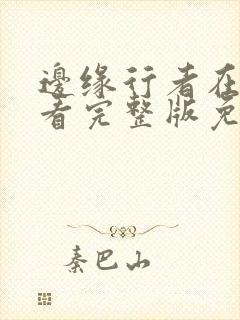 邊缘行者在
看完整版免
秦巴山